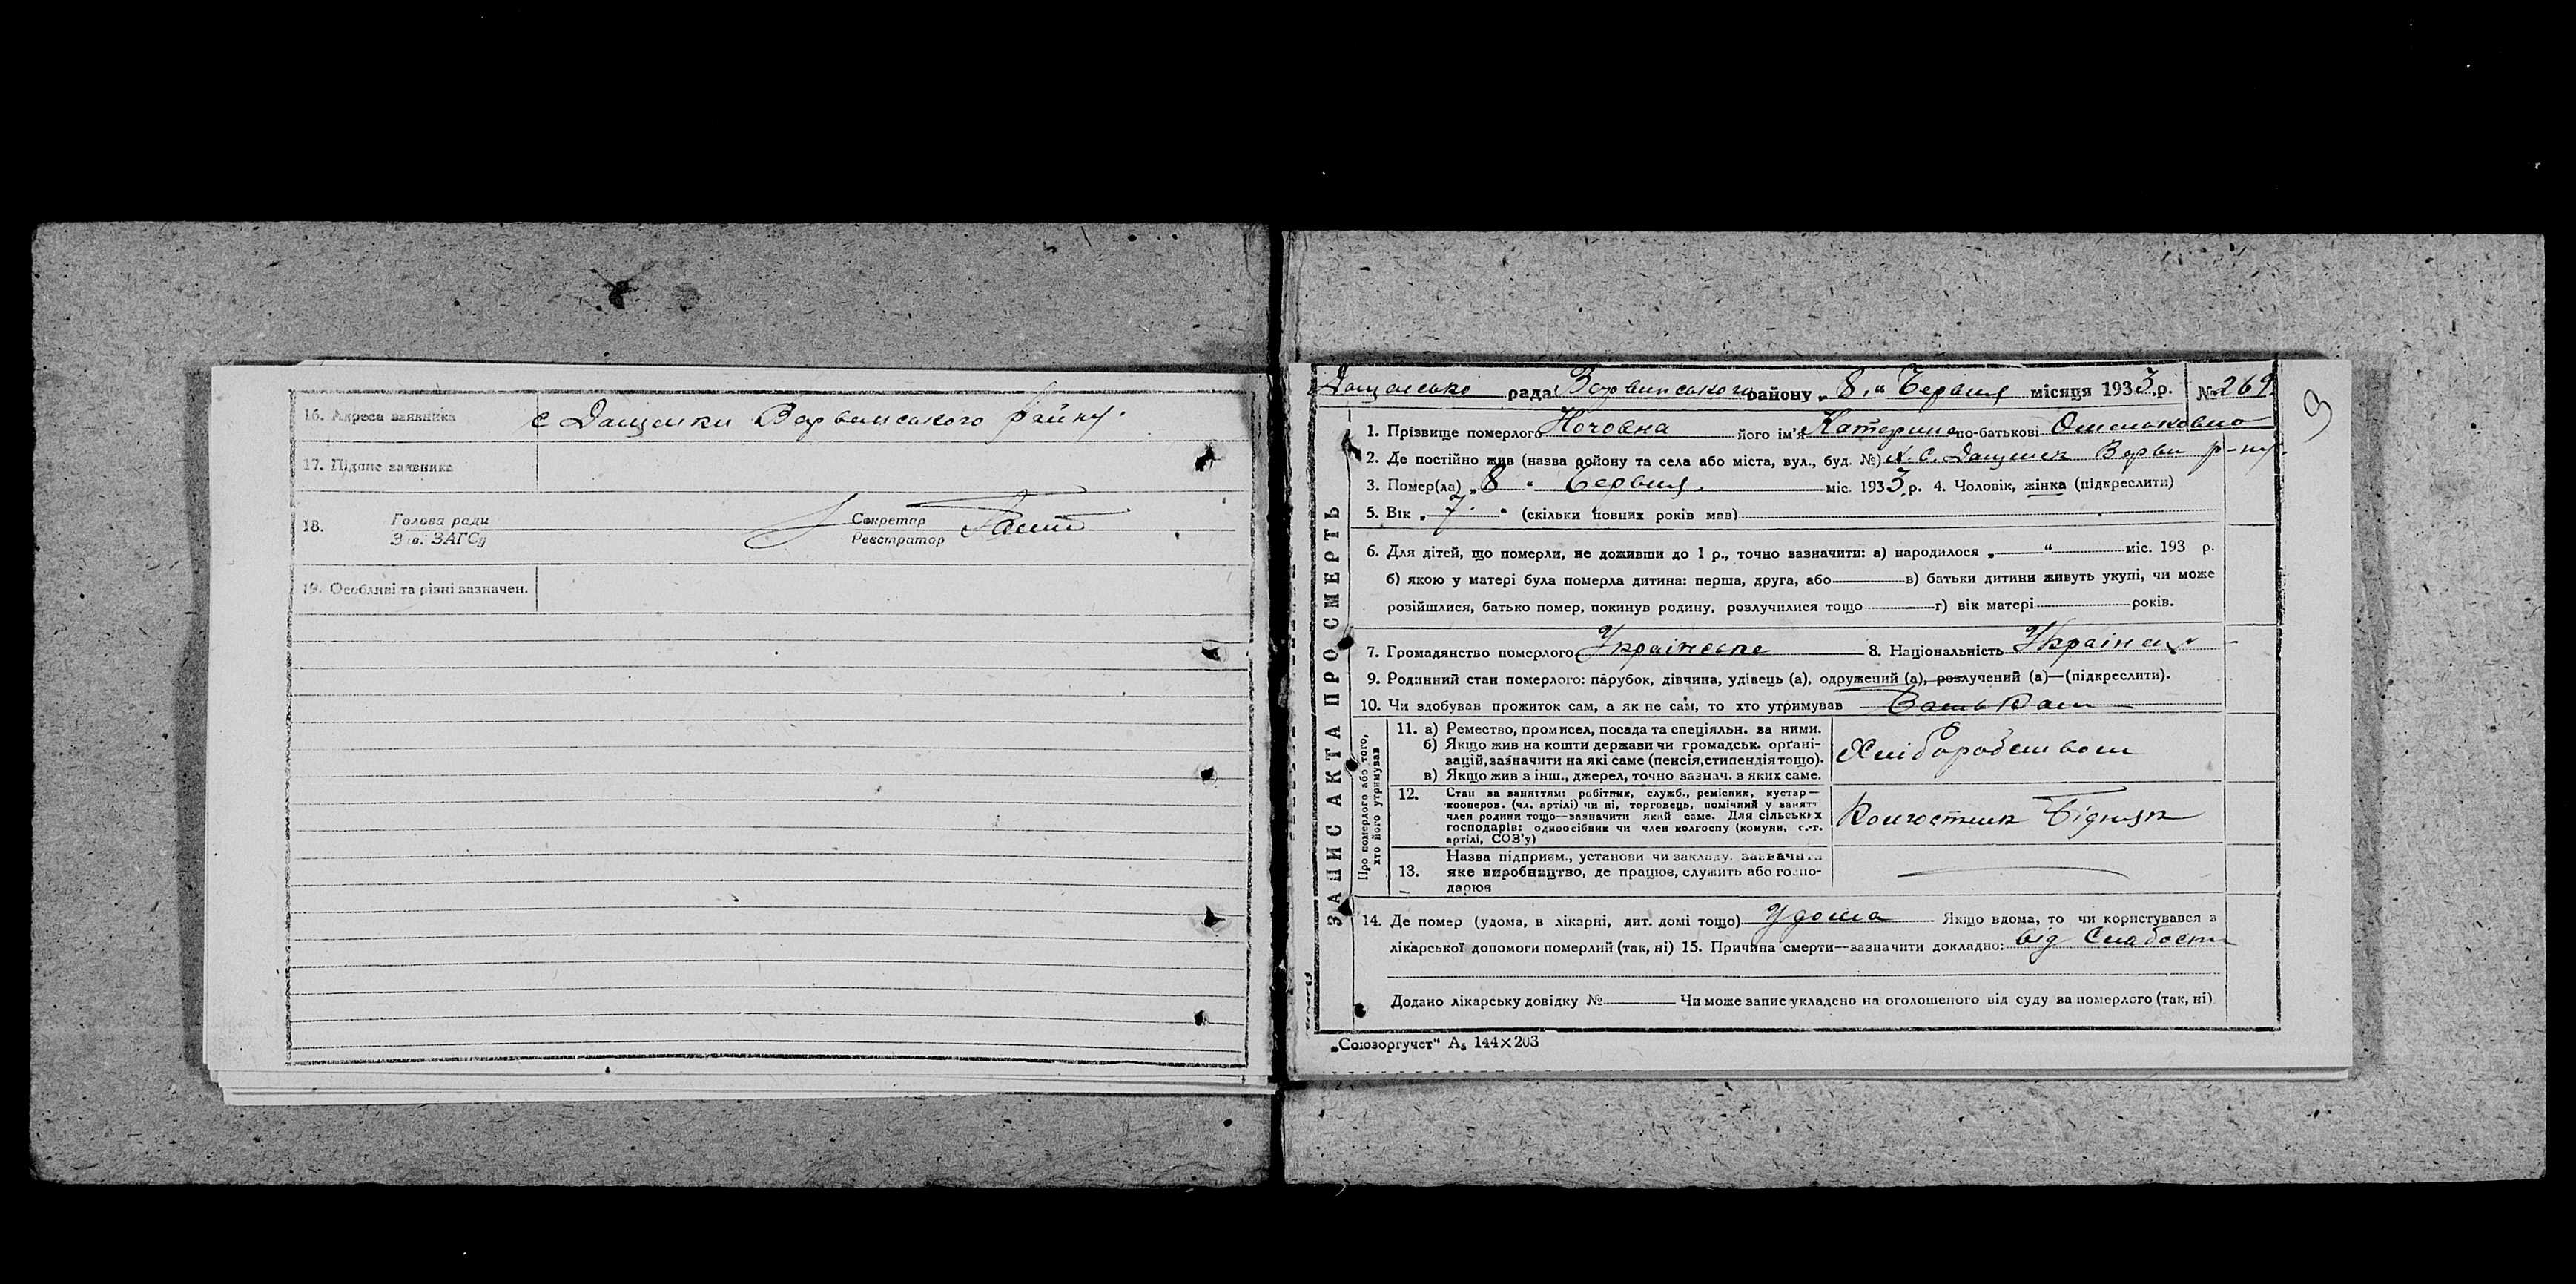 16. Адреса заявника с Дащенки Варвинського району.
17. Підпис заявника
18. Голова ради Секретар
Зав. ЗАГСу Реєстратор
19. Особливі та різні зазначен.
ЗАПИС АКТА ПРО СМЕРТЬ
рада Варвинського району „ 8 „ Червня місяця 1933 р. № 269
1. Прізвище померлого його ім'я Катерина по-батькові
2. Де постійно жив (назва району та села або міста, вул., буд. №) с. Дащенки Варви р-ну.
3. Помер(ла) „ 8 " Червня. міс. 1933 р. 4. Чоловік, жінка (підкреслити)
5. Вік „ 7 " (скільки повних років мав)
6. Для дітей, що померли, не доживши до 1 р., точно зазначити: а) народилося „ " міс. 193 р.
б) якою у матері була померла дитина: перша, друга, або в) батьки дитини живуть укупі, чи може
розійшлися, батько помер, покинув родину, розлучилися тощо г) вік матері років.
7. Громадянство померлого Українське 8. Національність
9. Родинний стан померлого: парубок, дівчина, удівець (а), одружений (а), розлучений (а)—(підкреслити).
10. Чи здобував прожиток сам, а як не сам, то хто утримував
Про померлого або того,
хто його утримував
11. а) Ремество, промисел, посада та спеціяльн. за ними.
б) Якщо жив на кошти держави чи громадськ. органі-
зацій, зазначити на які саме (пенсія, стипендія тощо).
в) Якщо жив з інш., джерел, точно зазнач. з яких саме.
Хліборобством
12. Стан за заняттям: робітник, служб., ремісник, кустар—
кооперов. (чл. артілі) чи ні, торговець, помічний у занятт
член родини тощо—зазначити який саме. Для сільських
господарів: одноосібник чи член колгоспу (комуни, с.-г.
артілі, СОЗ'у)
Колгоспник Бідняк
13. Назва підприєм., установи чи закладу, зазначити
яке виробництво, де працює, служить або госпо-
дарює
14. Де помер (удома, в лікарні, дит. домі тощо) Удома Якщо вдома, то чи користувався з
лікарської допомоги померлий (так, ні) 15. Причина смерти—зазначити докладно: від слабости
Додано лікарську довідку № Чи може запис укладено на оголошеного від суду за померлого (так, ні)
„Союзоргучет" А₅ 144×203
9